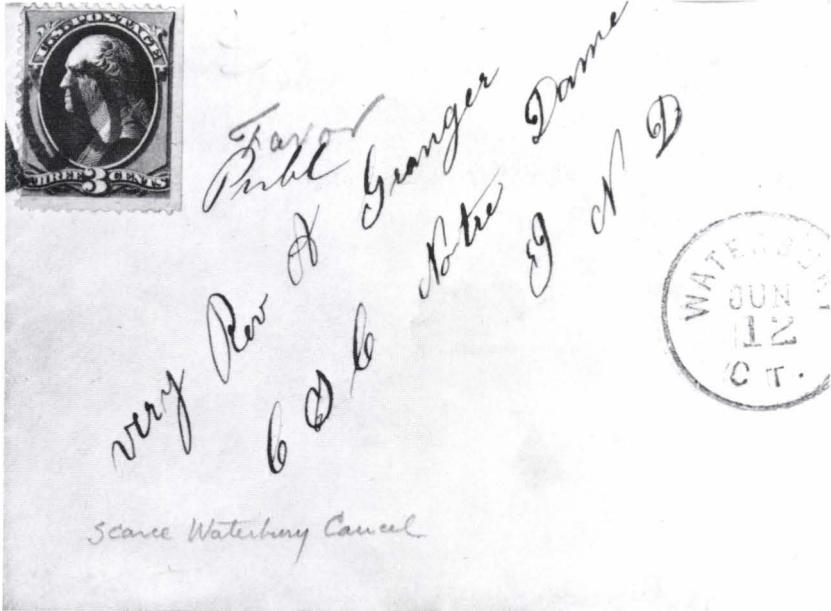 U.S. POSTAGE
THREE 3 CENTS
Favor
Publ
very Rev A Granger
C S C Notre Dame
I N D
WATERBURY
JUN
12
CT.
Scarce Waterbury Cancel